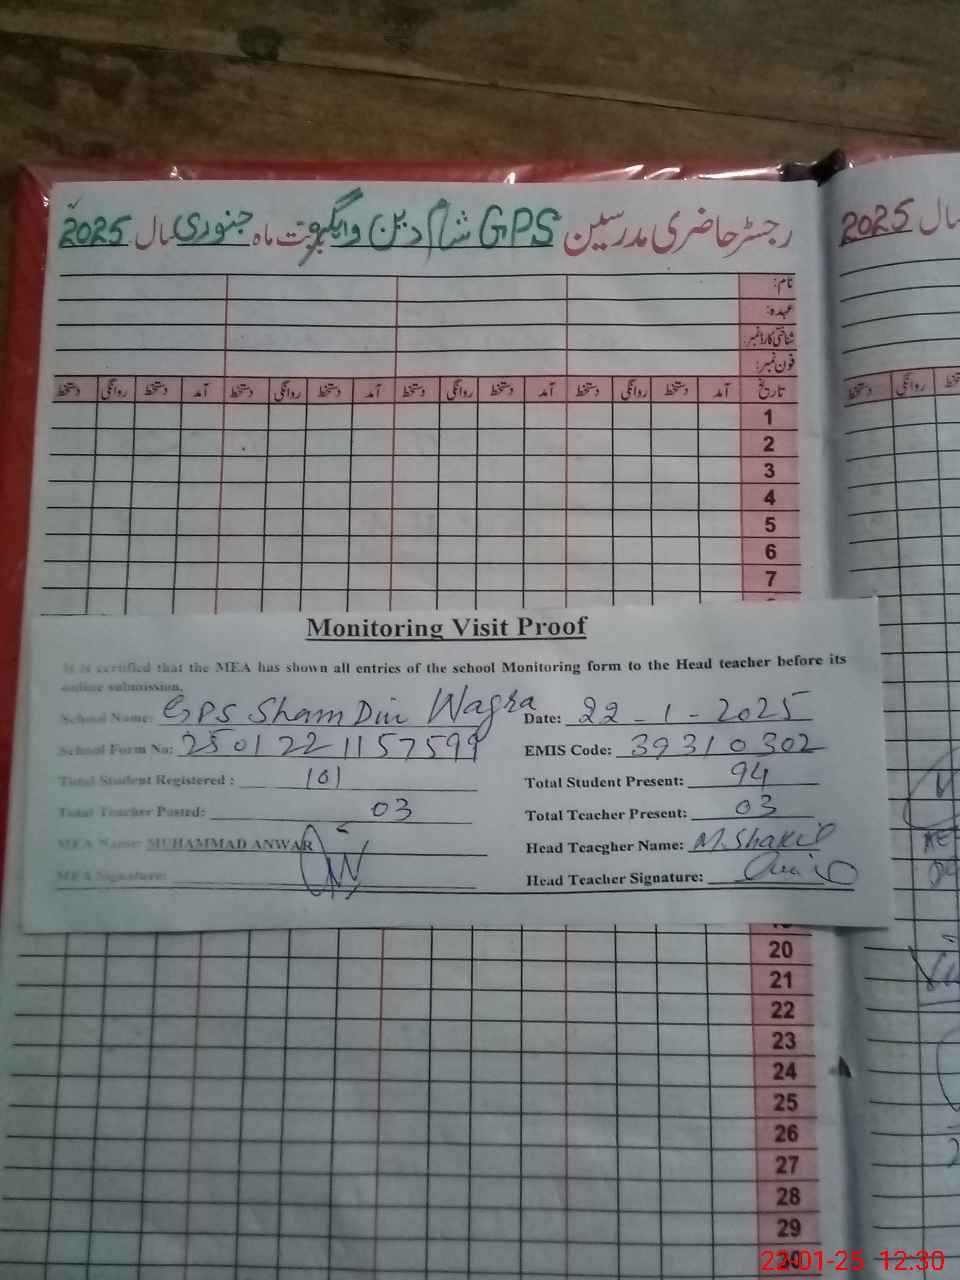 رجسٹر حاضری مدرسین GPS شام دین واگرہ بابت ماہ جنوری سال 2025
نام:
عہدہ:
شناختی کارڈ نمبر:
فون نمبر:
تاریخ آمد دستخط روانگی دستخط آمد دستخط روانگی دستخط آمد دستخط روانگی دستخط آمد دستخط روانگی دستخط
1
2
3
4
5
6
7
Monitoring Visit Proof
It is certified that the MEA has shown all entries of the school Monitoring form to the Head teacher before its
online submission.
School Name: GPS Sham Din Wagra Date: 22-1-2025
School Form No: 2501221157599 EMIS Code: 39310302
Total Student Registered : 101 Total Student Present: 94
Total Teacher Posted: 03 Total Teacher Present: 03
MEA Name: MUHAMMAD ANWAR Head Teacgher Name: M. Shakil
MEA Signature: Head Teacher Signature:
19
20
21
22
23
24
25
26
27
28
29
30
سال 2025
دستخط روانگی
22-01-25 12:30